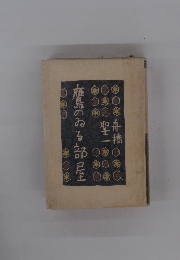 舟橋聖一
鷹のゐる部屋